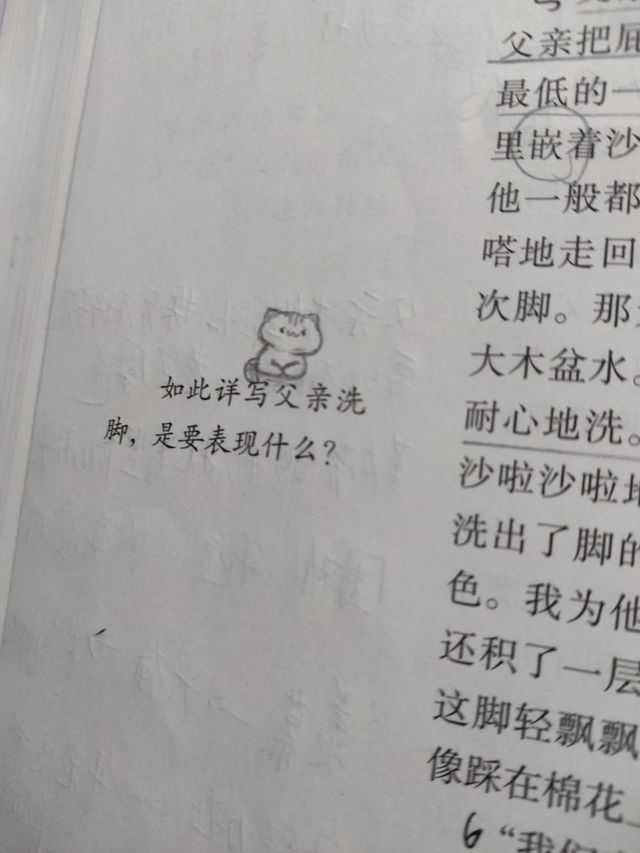 如此详写父亲洗
脚，是要表现什么？
父亲把屁
最低的一
里嵌着沙
他一般都
嗒地走回
次脚。那
大木盆水。
耐心地洗。
沙啦沙啦地
洗出了脚的
色。我为他
还积了一层
这脚轻飘飘
像踩在棉花
6 “我们